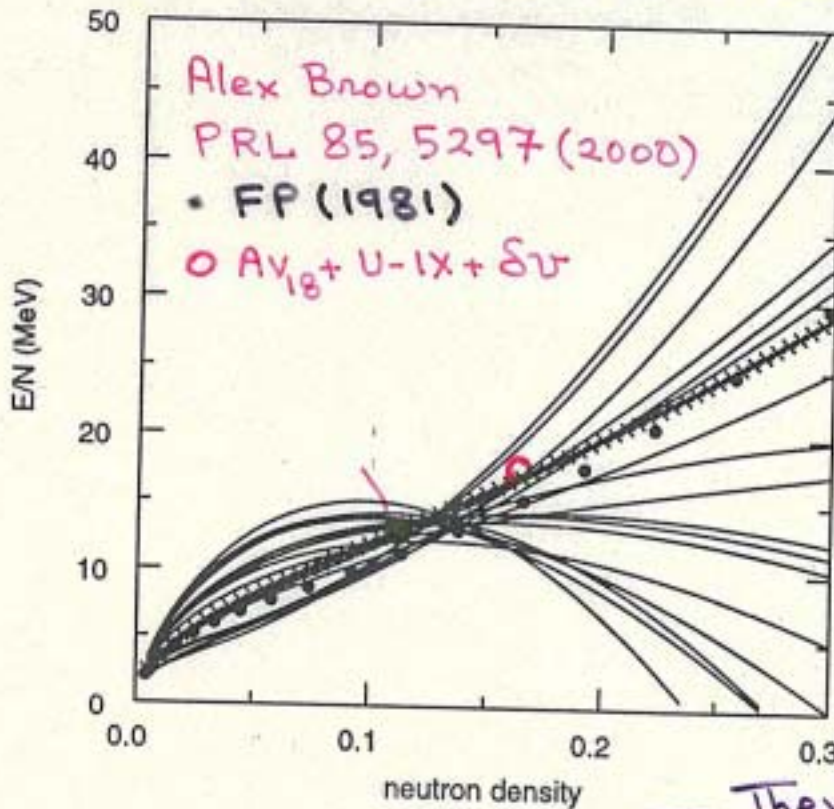 50
Alex Brown
PRL 85, 5297 (2000)
• FP (1981)
40
O AV18 + U-IX + δv
30
E/N (MeV)
20
10
0
0.0 0.1 0.2 0.3
neutron density